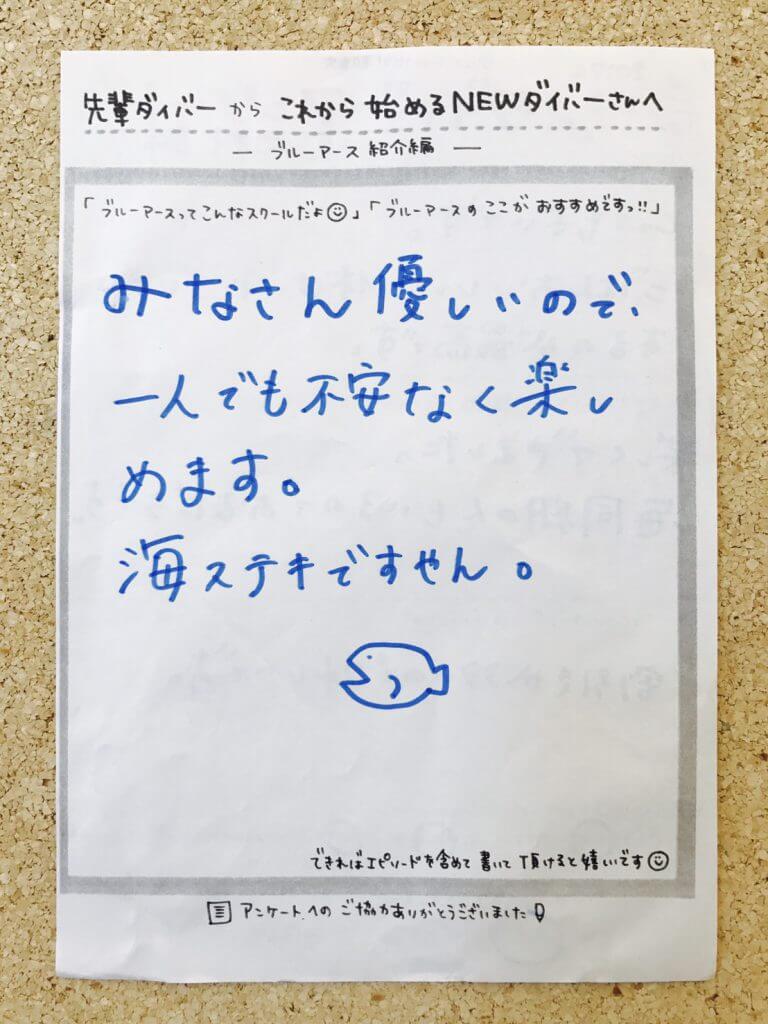 先輩ダイバーから これから 始めるNEWダイバーさんへ
― ブルーアース 紹介編 ―
「ブルーアースってこんなスクールだよ☺」「ブルーアースの ここが おすすめですっ!!」
みなさん優しいので、
一人でも不安なく楽し
めます。
海ステキですやん。
できればエピソードを含めて 書いて 頂けると嬉しいです☺
アンケートへの ご協力ありがとうございました